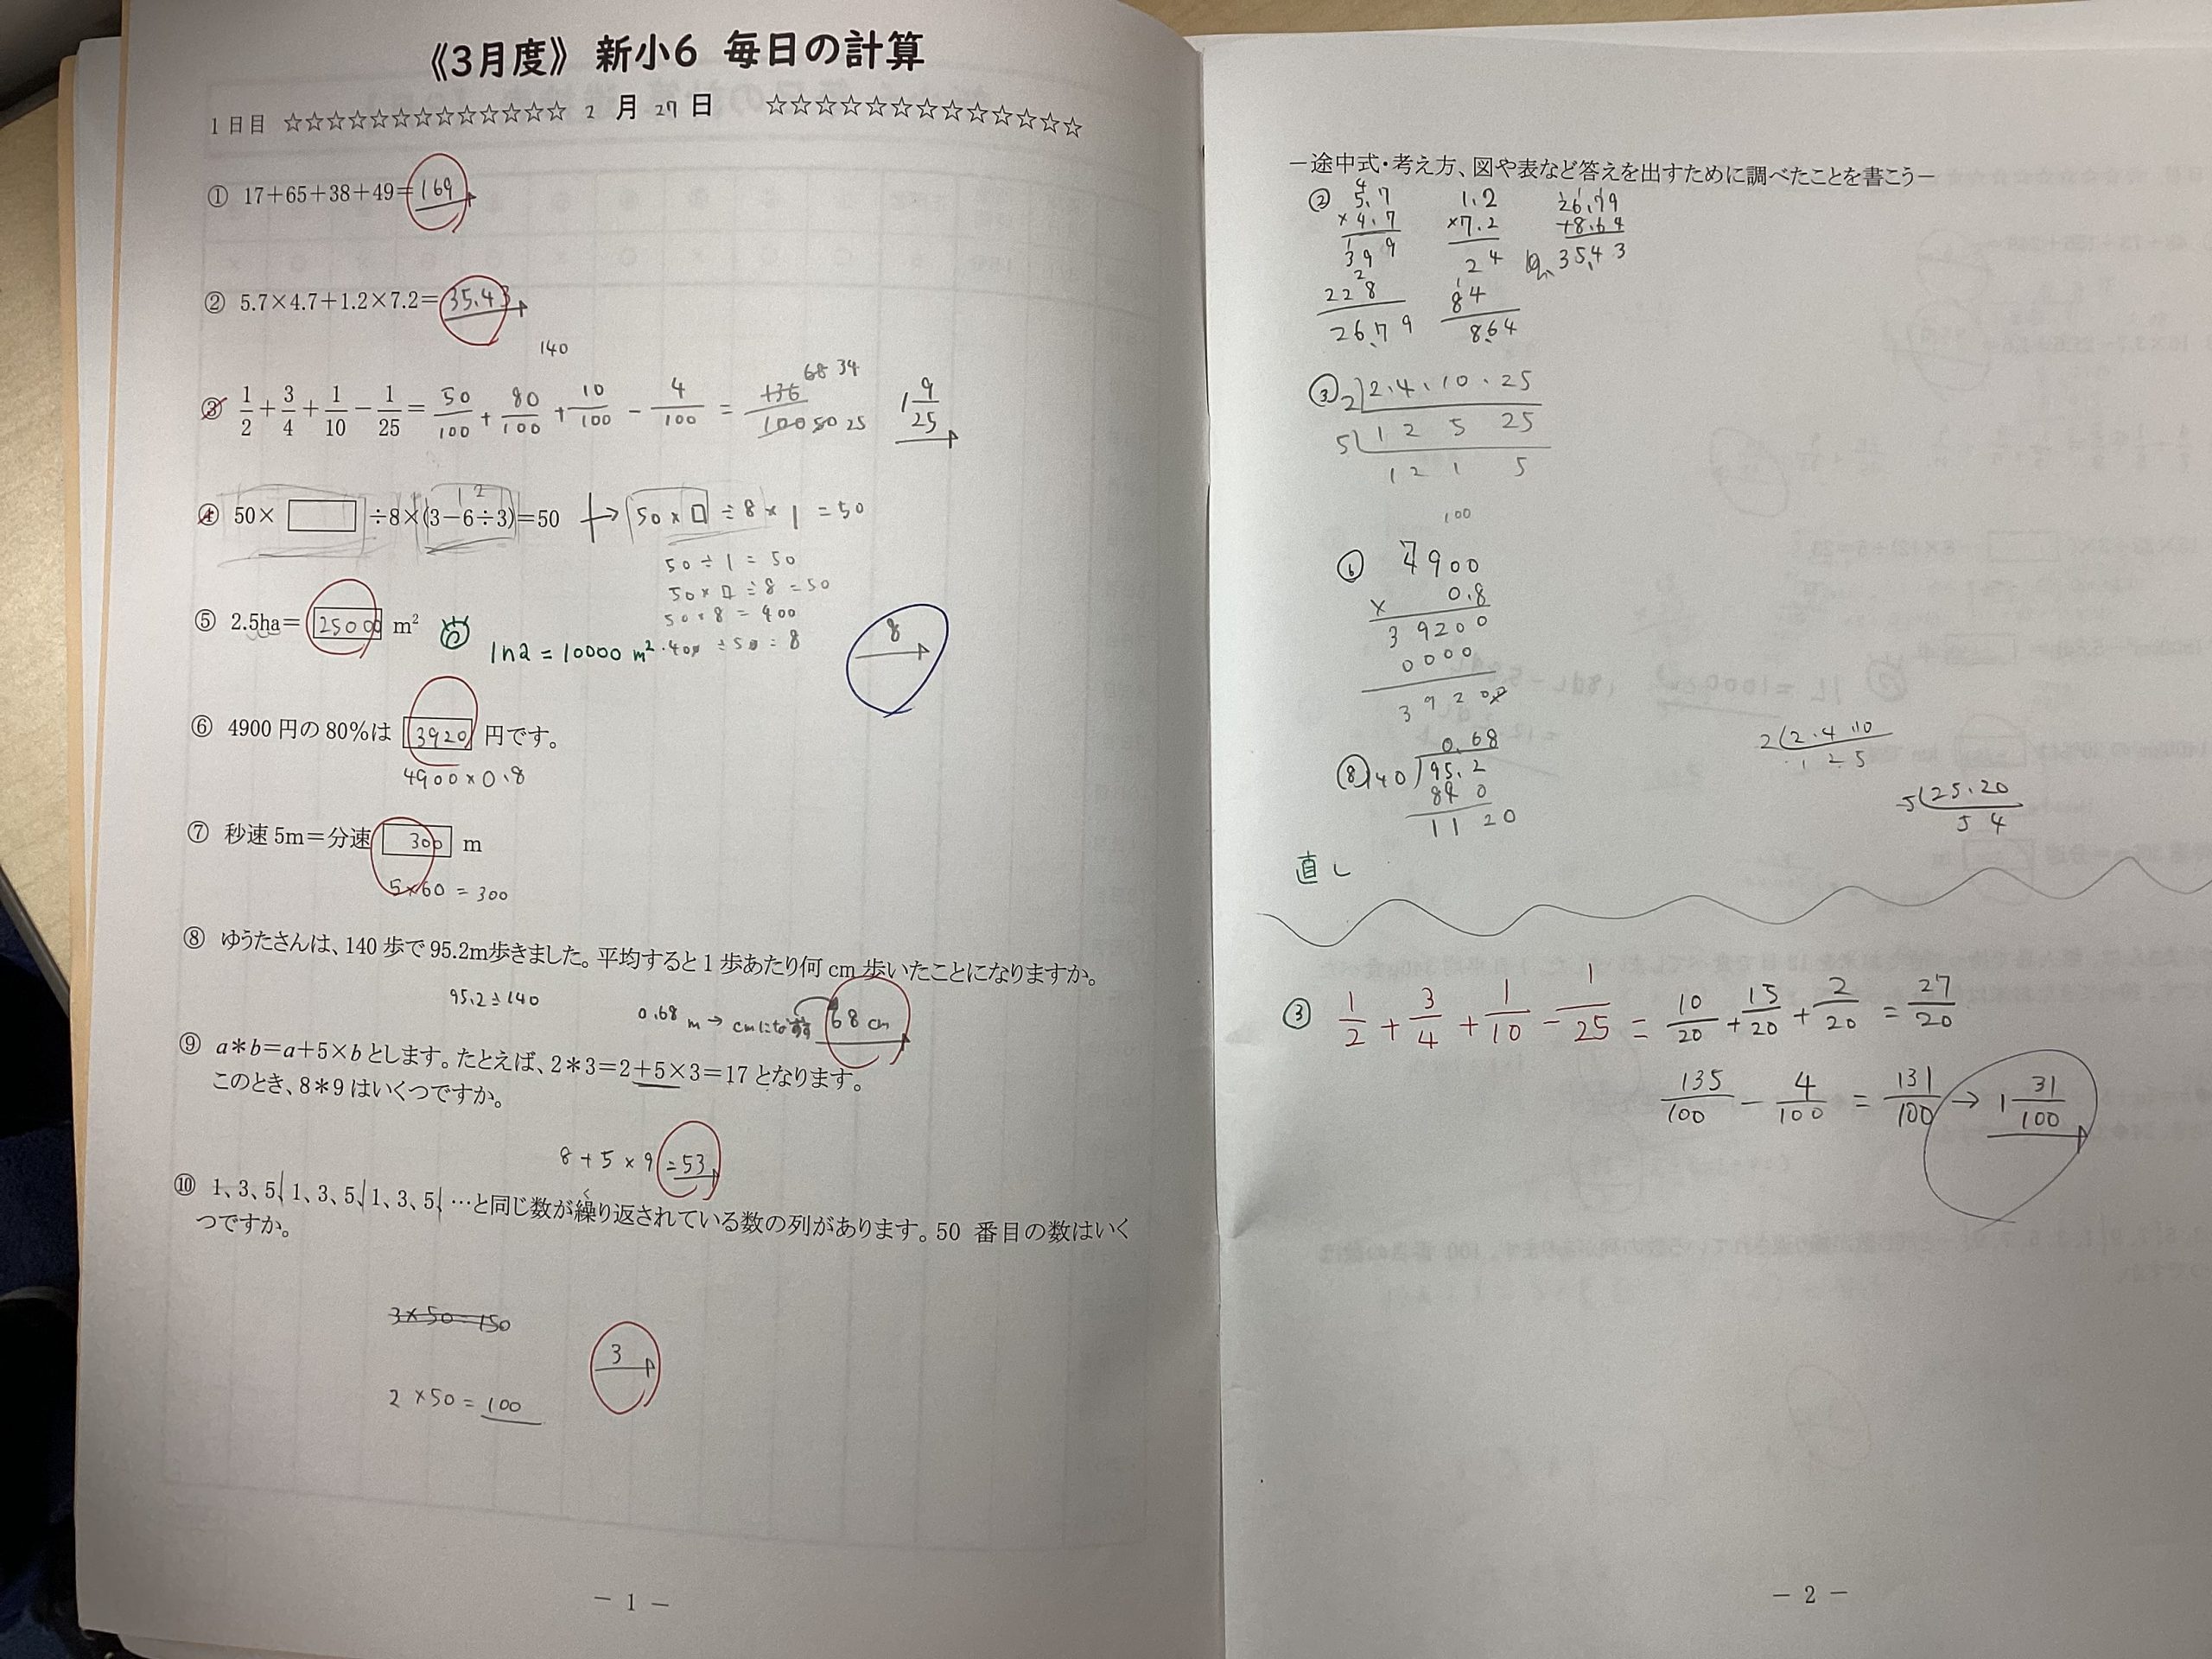 《3月度》 新小6 毎日の計算
1日目 ☆☆☆☆☆☆☆☆☆☆☆☆☆ 2 月 27 日 ☆☆☆☆☆☆☆☆☆☆☆☆☆
① 17+65+38+49=169
② 5.7×4.7+1.2×7.2=35.43
140
③ 1/2+3/4+1/10−1/25= 50/100 + 80/100 + 10/100 − 4/100 = 136/100 68/50 34/25 1 9/25
1 2
④ 50× □ ÷8×(3−6÷3)=50 → 50×□÷8×1=50
50÷1=50
50×□÷8=50
50×8=400
400÷50=8
8
⑤ 2.5ha= 25000 m²
1ha=10000m²
⑥ 4900円の80%は 3920 円です。
4900×0.8
⑦ 秒速5m=分速 300 m
5×60=300
⑧ ゆうたさんは、140歩で95.2m歩きました。平均すると1歩あたり何cm歩いたことになりますか。
95.2÷140
0.68m→cmになおす 68cm
⑨ a*b=a+5×bとします。たとえば、2*3=2+5×3=17となります。
このとき、8*9はいくつですか。
8+5×9=53
⑩ 1、3、5、1、3、5、1、3、5、…と同じ数が繰り返されている数の列があります。50番目の数はいく
く
つですか。
3×50=150
3
2×50=100
− 1 −
−途中式・考え方、図や表など答えを出すために調べたことを書こう−
② 5.7 1.2 26.79
×4.7 ×7.2 +8.64
399 24 35.43
228 84
26.79 8.64
③ 2)2.4.10.25
5)1 2 5 25
1 2 1 5
100
⑥ 4900
× 0.8
39200
0000
39200
2)2.4.10
1 2 5
⑧ 0.68
140)95.2
840
1120
5)25.20
5 4
直し
③ 1/2 + 3/4 + 1/10 − 1/25 = 10/20 + 15/20 + 2/20 = 27/20
135/100 − 4/100 = 131/100 → 1 31/100
− 2 −